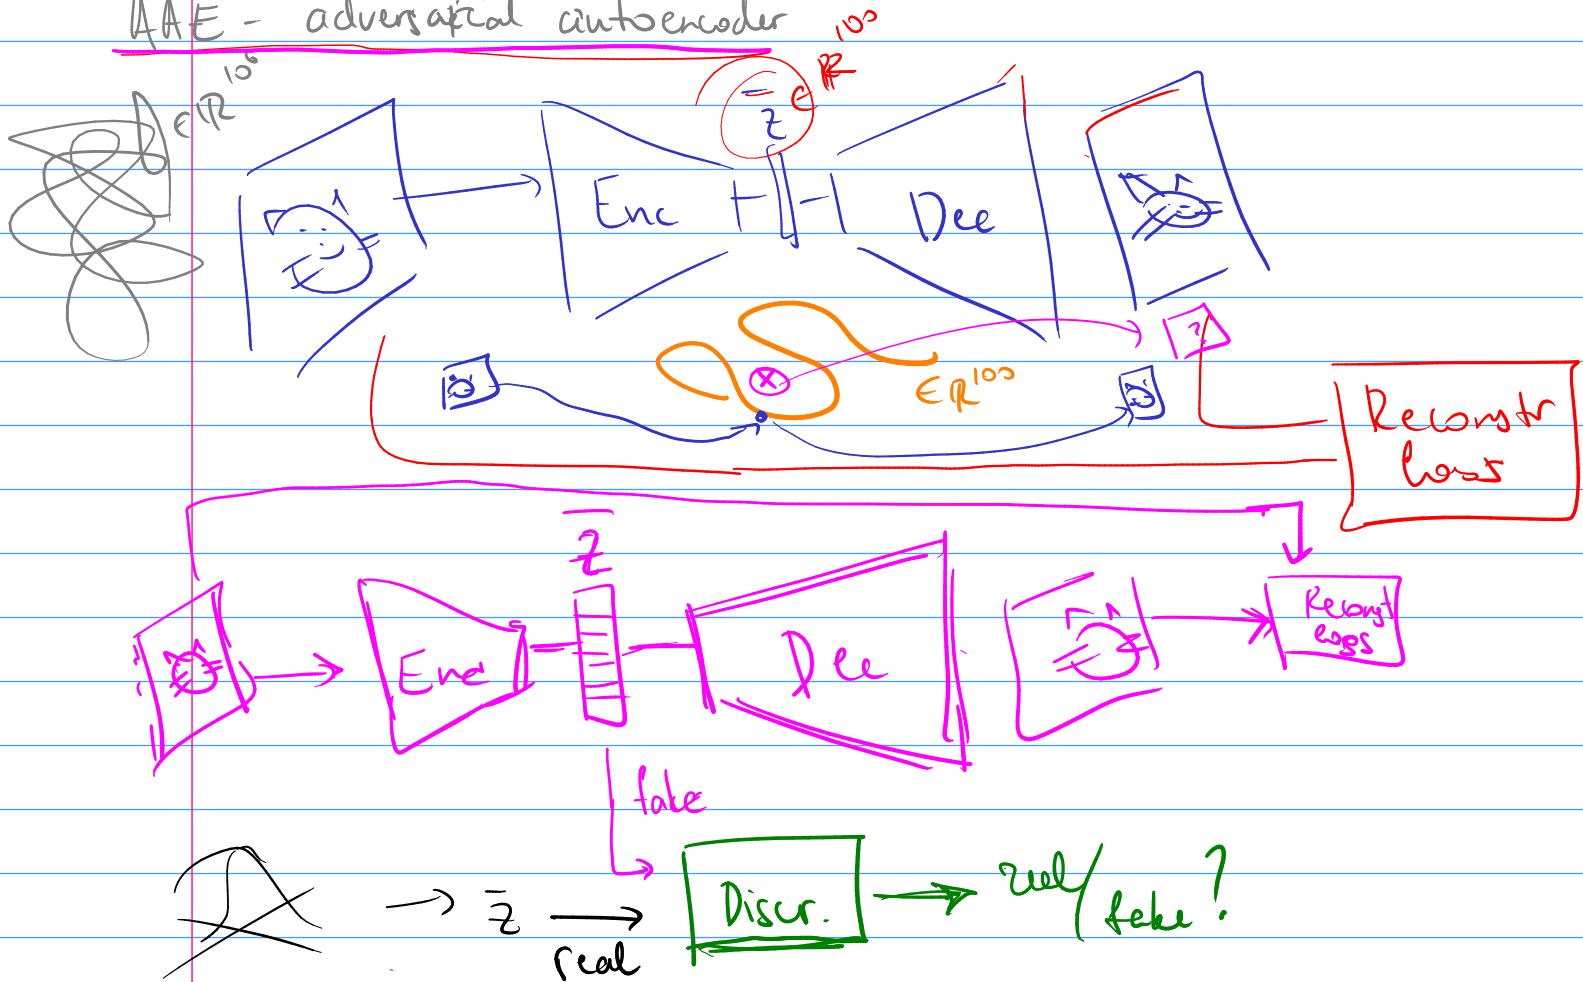 AAE - adversarial autoencoder
∈ℝ^10^6
z̄ ∈ ℝ^100
Enc
Dec
?
∈ℝ^100
Reconstr
Loss
z̄
Enc
Dec
Reconst
Loss
fake
z̄
real
Discr.
real/
fake?